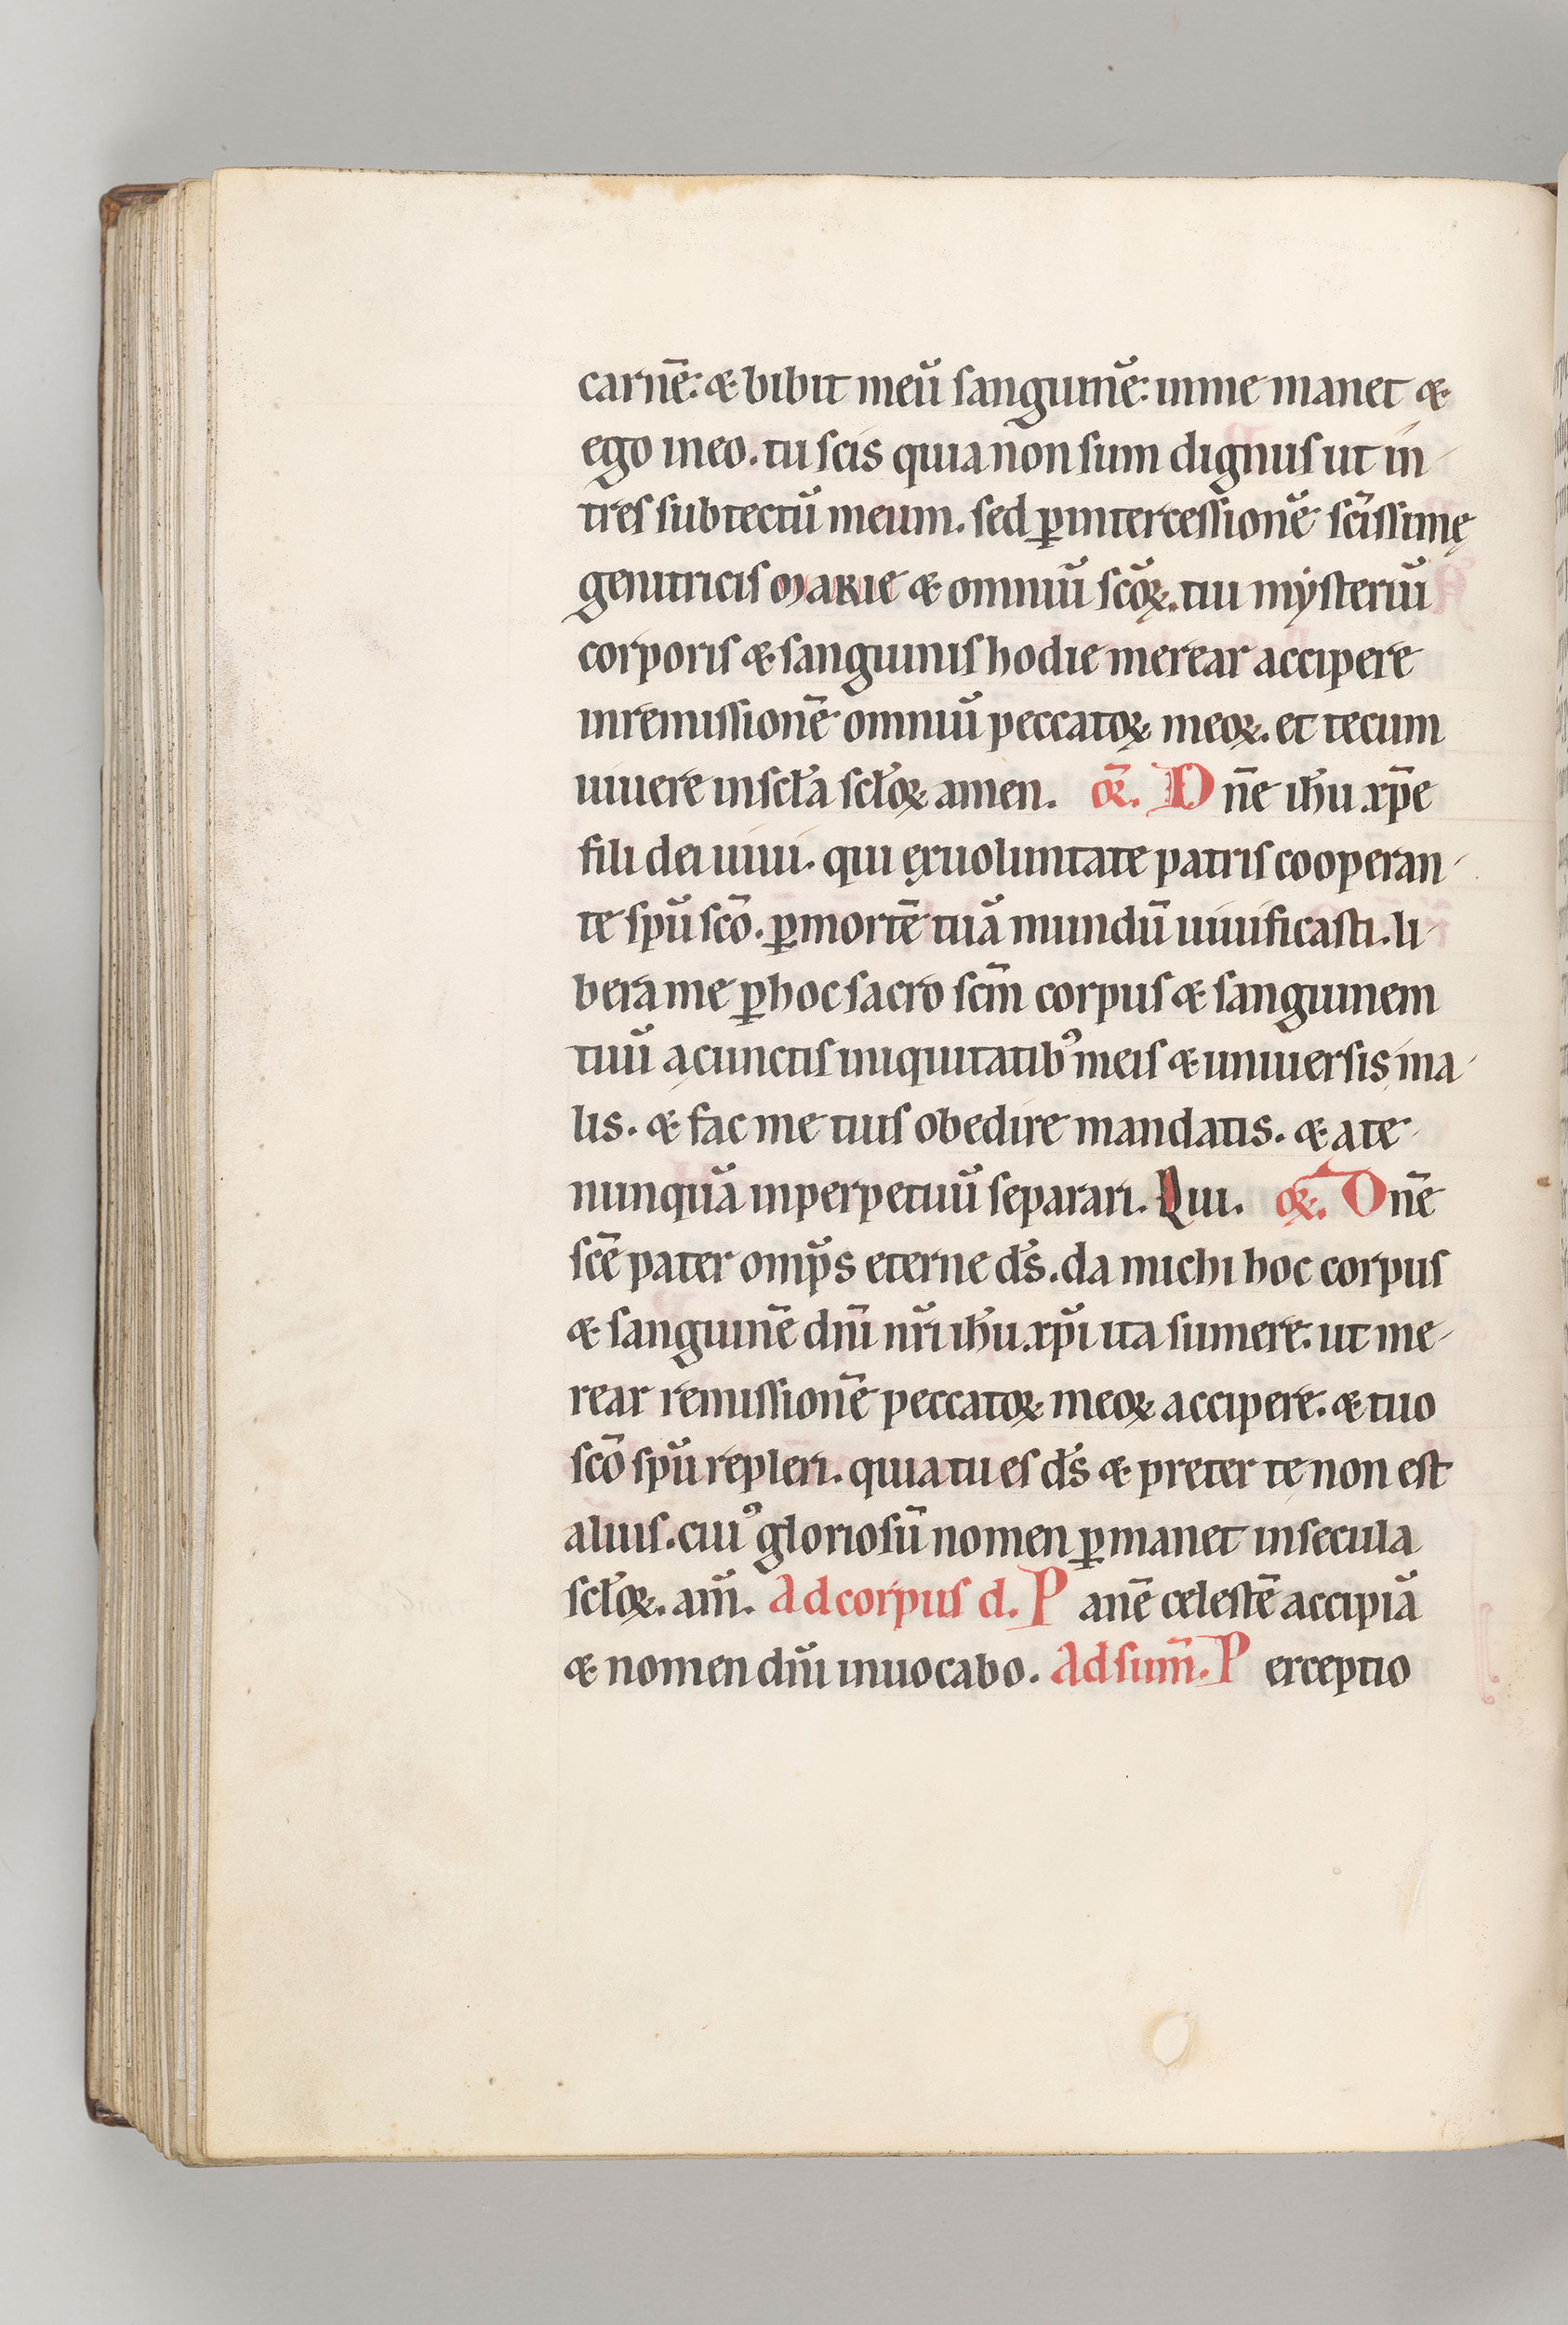 carnē: & bibit meū sanguinē: in me manet &
ego in eo. tu scis quia non sum dignus ut in-
tres sub tectū meum. sed ꝑ intercessionē sc̄issimę
genitricis MARIE & omniū sc̄oꝝ. tui mẏsteriū
corporis & sanguinis hodie merear accipere
in remissionē omniū peccatoꝝ meoꝝ. et tecum
uiuere in scl̄a scl̄oꝝ amen. or̄. Dn̄e ih̄u xp̄e
fili dei uiui. qui ex uoluntate patris cooperan-
te sp̄u sc̄o. ꝑ mortē tuā mundū uiuificasti. li-
bera me ꝑ hoc sacro sc̄m corpus & sanguinem
tuū a cunctis iniquitatibꝰ meis & uniuersis ma-
lis. & fac me tuis obedire mandatis. & a te
nunquā in perpetuū separari. Qui. oꝝ. Dn̄e
sc̄e pater omp̄s eterne ds̄. da michi hoc corpus
& sanguinē dn̄i nr̄i ih̄u xp̄i ita sumere: ut me-
rear remissionē peccatoꝝ meoꝝ accipere. & tuo
sc̄o sp̄u repleri. quia tu es ds̄ & preter te non est
alius. cuiꝰ gloriosū nomen ꝑmanet in secula
scl̄oꝝ. am̄. Ad corpus d. Panē celestē accipiā
& nomen dn̄i inuocabo. Ad sum̄. Perceptio